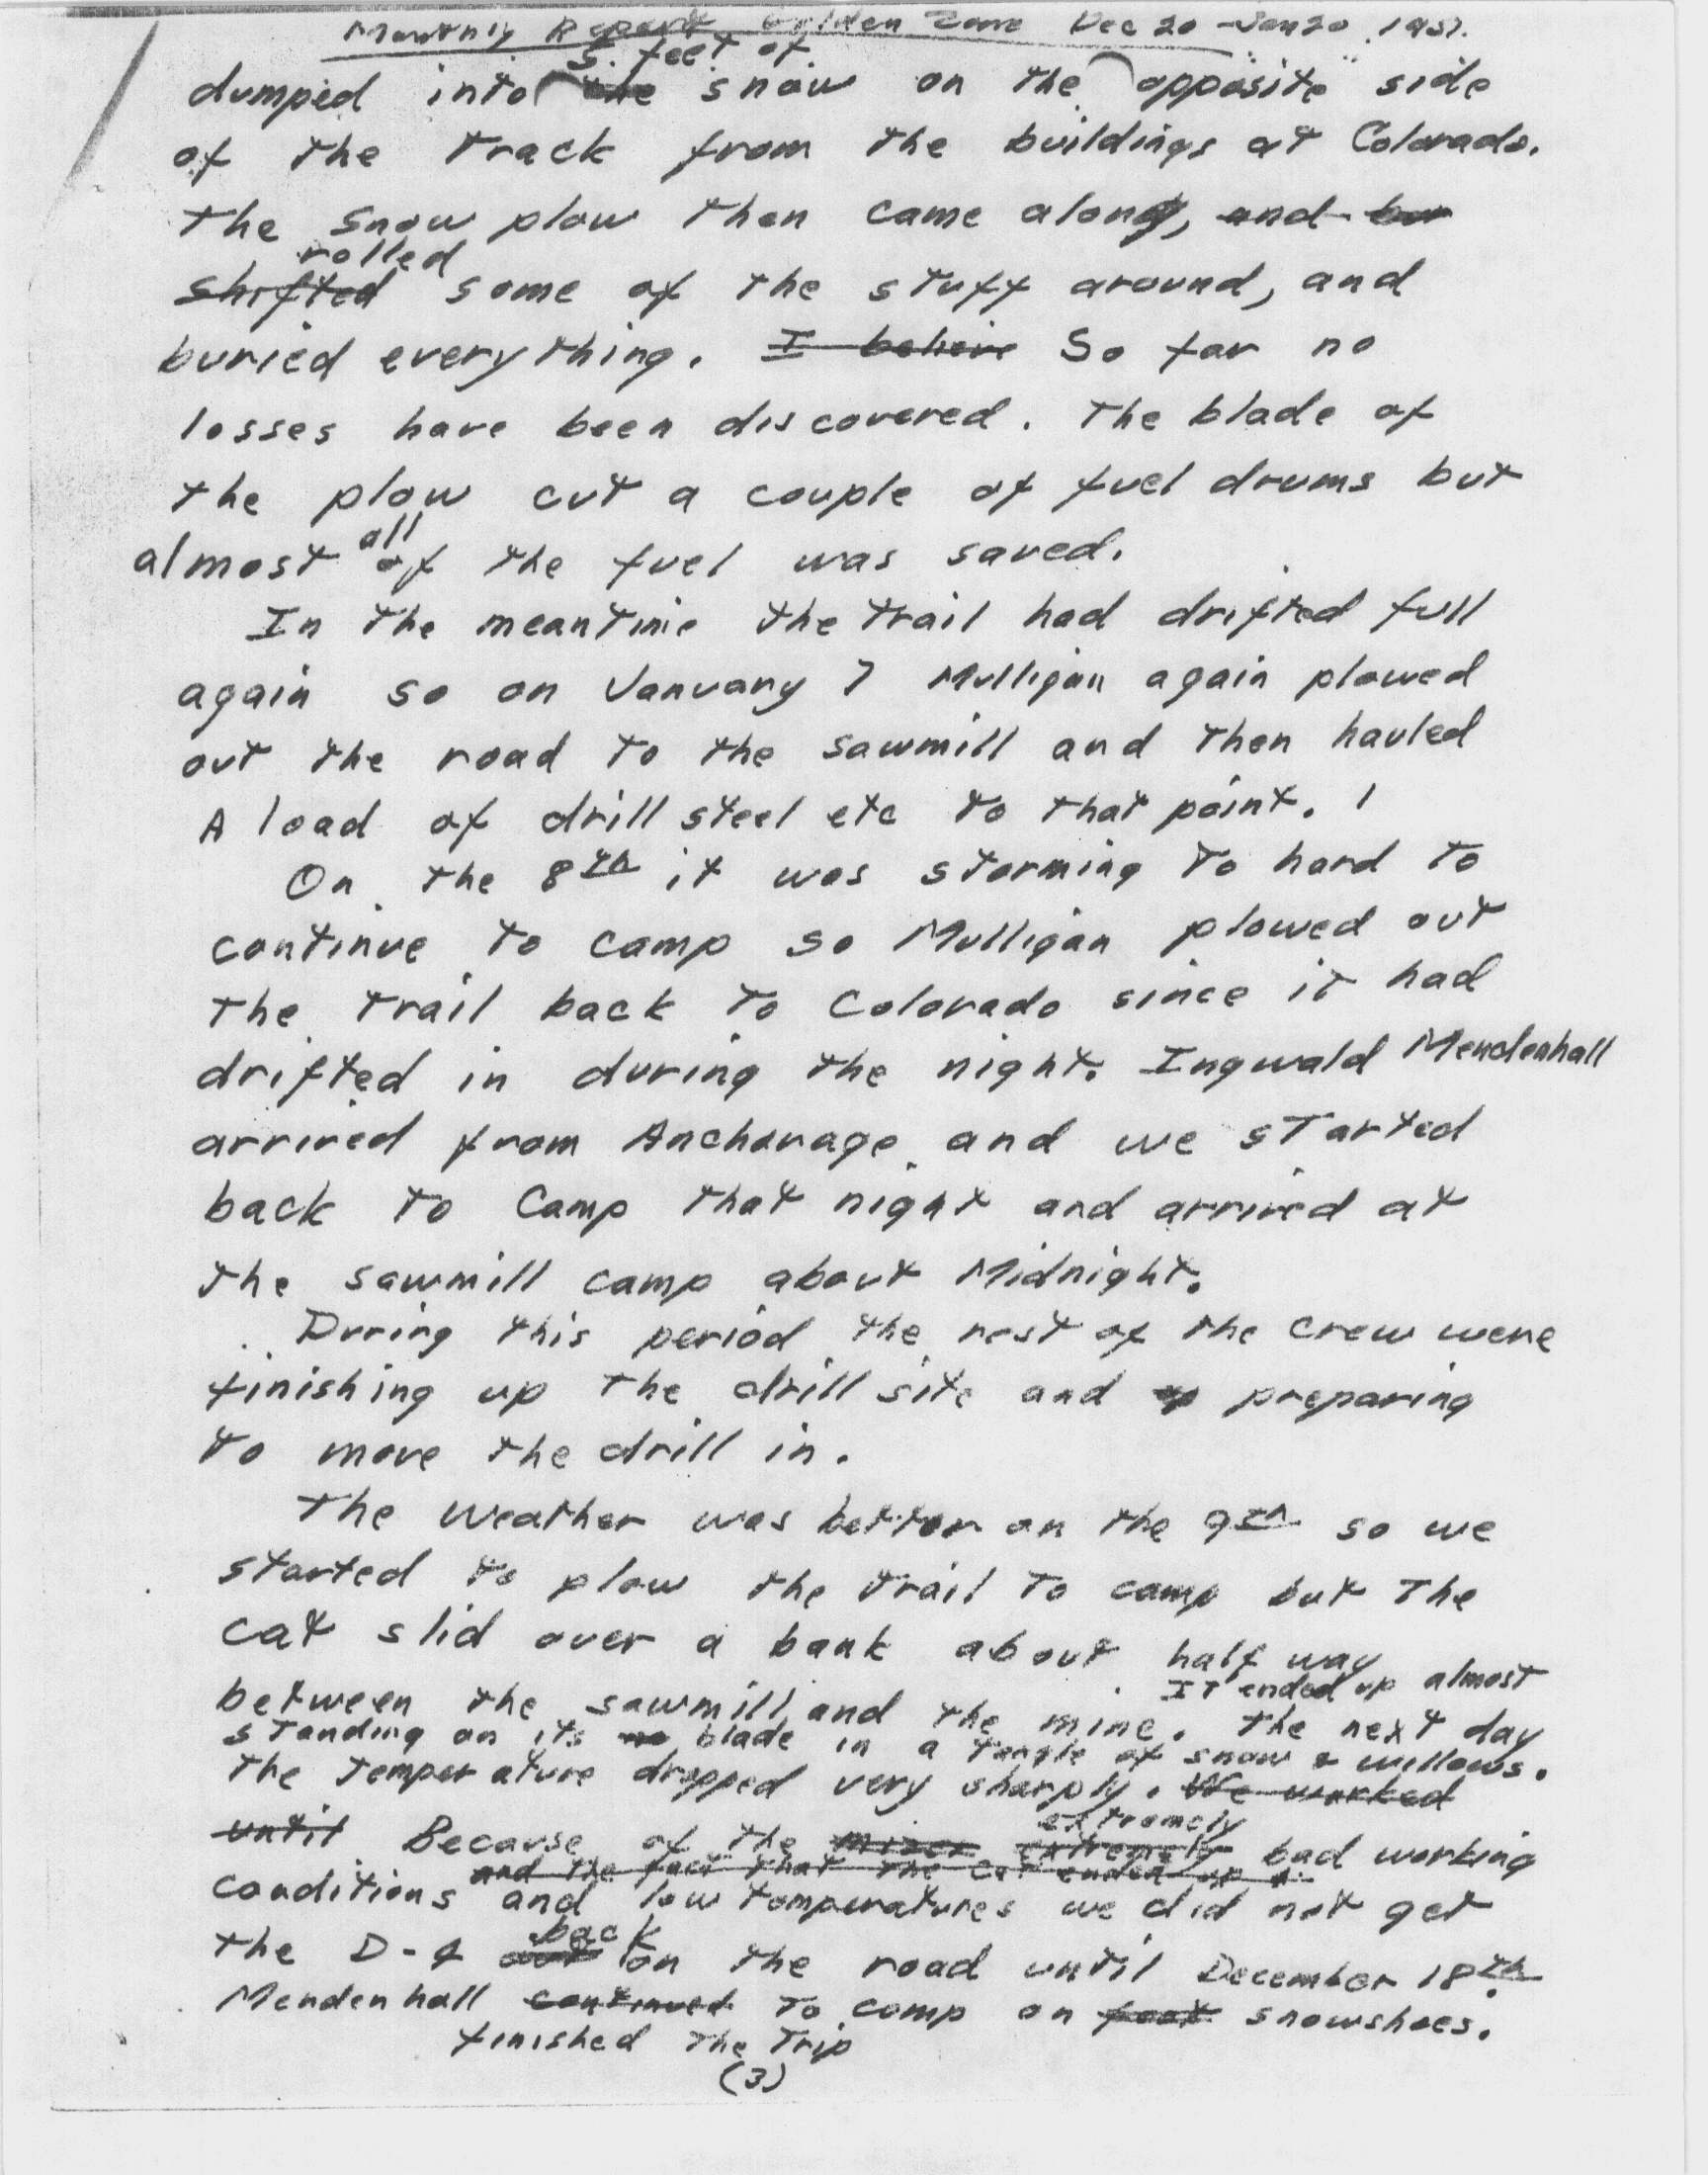 Monthly Report Golden Zone Dec 20 - Jan 20, 1951.
5. feet of
dumped into the snow on the "opposite" side
of the track from the buildings at Colorado.
The snow plow then came along, and
rolled
shifted some of the stuff around, and
buried everything. I believe So far no
losses have been discovered. The blade of
the plow cut a couple of fuel drums but
all
almost of the fuel was saved.
In the meantime the trail had drifted full
again so on January 7 Mulligan again plowed
out the road to the sawmill and then hauled
A load of drill steel etc to that point.
On the 8th it was storming to hard to
continue to camp so Mulligan plowed out
the trail back to Colorado since it had
drifted in during the night. Ingwald Mendenhall
arrived from Anchorage and we started
back to Camp that night and arrived at
the sawmill camp about Midnight.
During this period the rest of the crew were
finishing up the drill site and preparing
to move the drill in.
The weather was better on the 9th so we
started to plow the trail to camp but The
cat slid over a bank about half way
It ended up almost
between the sawmill and the mine. The next day
standing on its blade in a tangle of snow & willows.
the temperature dropped very sharply. We worked
extremely
until Because of the extremely bad working
and the fact that the cat ended up
conditions and low temperatures we did not get
back
the D-4 out on the road until December 18th.
Mendenhall continued to camp on foot snowshoes.
finished the trip
(3)